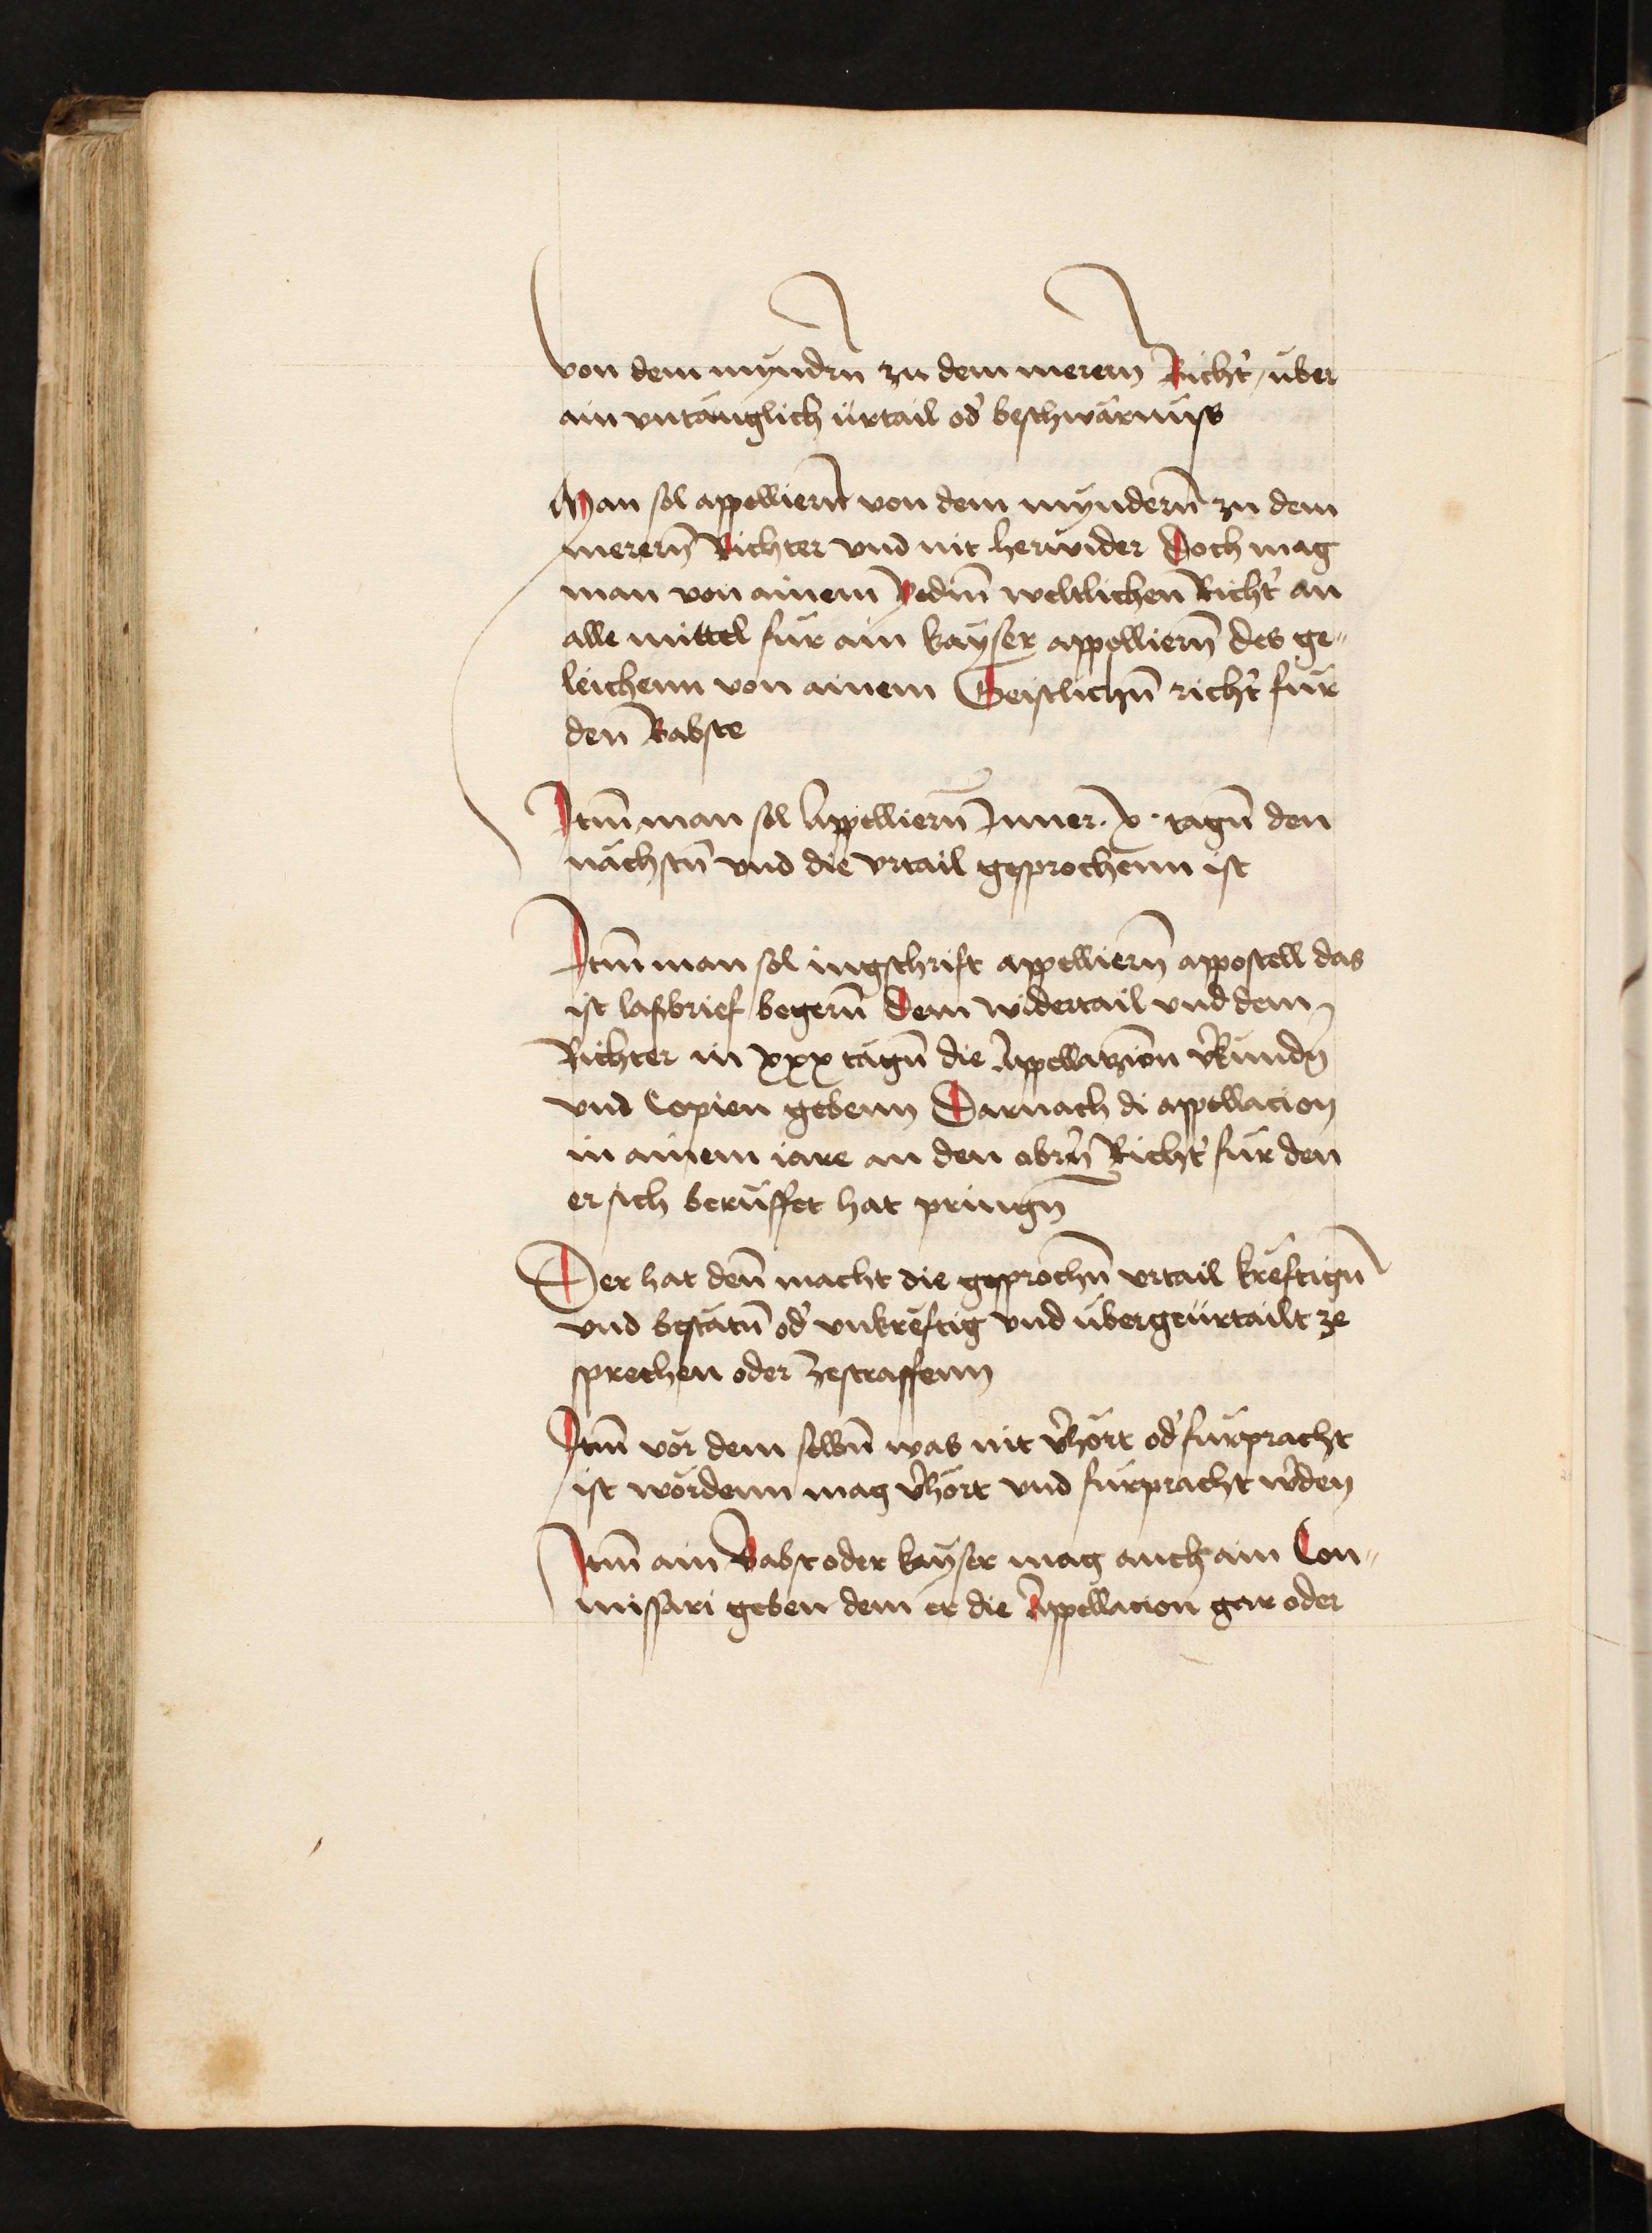 von dem myndrn̄ zu dem merern Richt̉ / über
ain vntäuglich ürtail od̉ beschwärnüss
Man sol appelliern̄ von dem myndern̄ zu dem
merern̄ Richter vnd nit herwider Doch mag
man von ainem yedm̄ weltlichen Richt̉ an
alle mittel für ain kayser appelliern̄ des ge„
leichenn von ainem Geistlichn̄ richt̉ für
den Babste
Itm̄ man sol Appelliern̄ Inner · x · tagn̄ den
nächstn̄ vnd die vrtail gesprochenn ist
Itm̄ man sol ingschrift appelliern̄ appostell das
ist lasbrief begern̄ Dem widertail vnd dem
Richter in xxx tägn̄ die Appellatzion v̉kündn̄
vnd Copien gebenn Darnach di appellacion
in ainem iare an den obrn̄ Richt̉ für den
er sich berüffet hat pringn̄
Der hat den̄ macht die gesprochn̄ vrtail kreftign̄
vnd bestätn̄ od̉ vnkreftig vnd übergeürtailt ze
sprechen oder zestraffenn
Itm̄ vor dem selbn̄ was nit v̉hört od̉ fürpracht
ist wordenn mag v̉hört vnd fürpracht w̉den
Itm̄ ain Babst oder kayser mag auch ain Con„
missari geben dem er die Appellacion gar oder